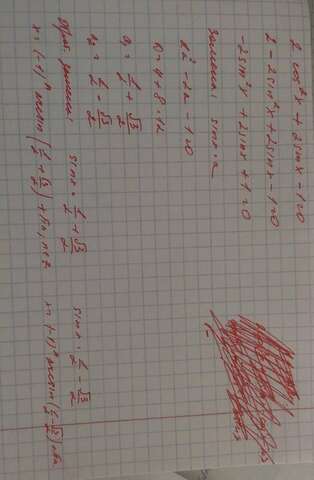 2 cos²x + 2sinx - 1 = 0
2 - 2sin²x + 2sinx - 1 = 0
-2sin²x + 2sinx + 1 = 0
Замена: sinx = a
2a² - 2a - 1 = 0
D = 4 + 8 = 12
a₁ = 1/2 + √3/2
a₂ = 1/2 - √3/2
Обрат. замена: sinx = 1/2 + √3/2 sinx = 1/2 - √3/2
x = (-1)ⁿ arcsin(1/2 + √3/2) + πn, n∈Z x = (-1)ⁿ arcsin(1/2 - √3/2) + πn